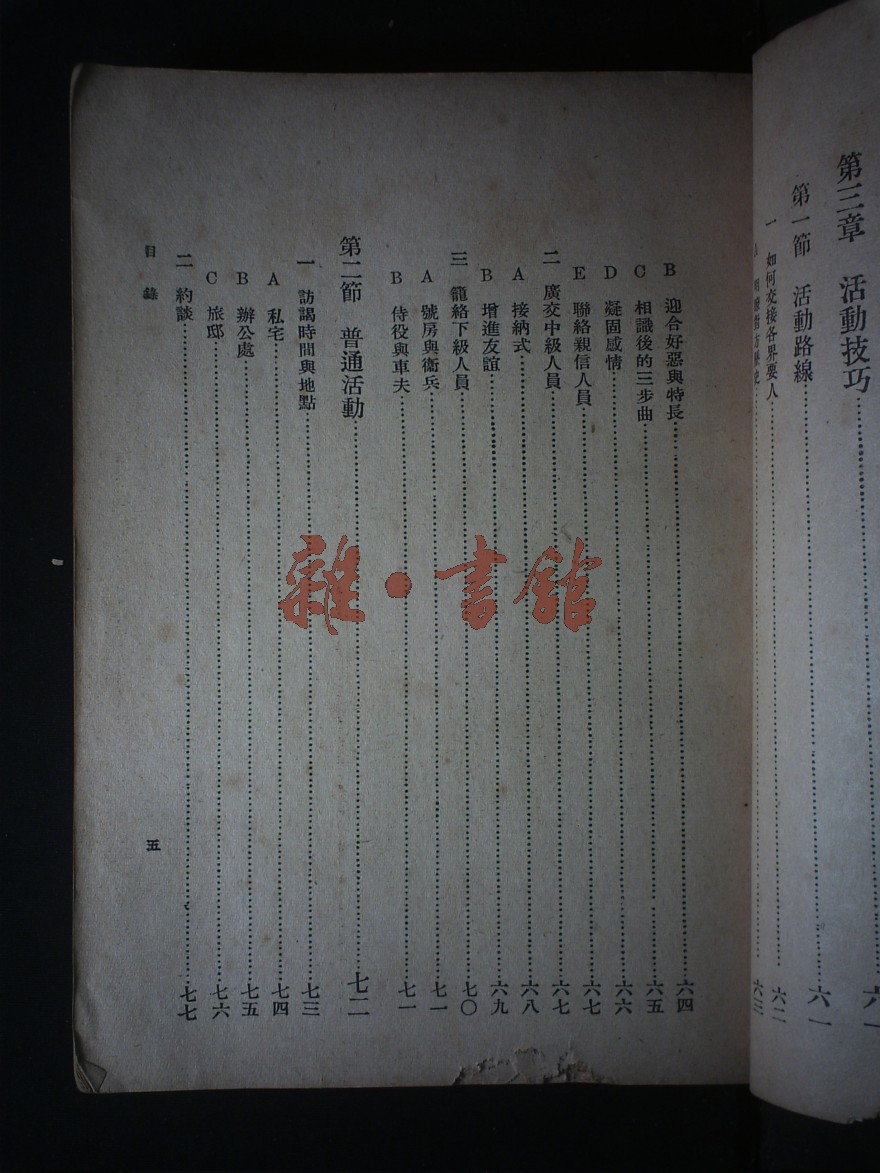 第三章 活動技巧……六一
第一節 活動路線……六一
一 如何交接各界要人……六二
六三
B 迎合好惡與特長……六四
C 相識後的三步曲……六五
D 凝固感情……六六
E 聯絡親信人員……六七
二 廣交中級人員……六七
A 接納式……六八
B 增進友誼……六九
三 籠絡下級人員……七〇
A 號房與衞兵……七一
B 侍役與車夫……七一
第二節 普通活動……七二
一 訪謁時間與地點……七三
A 私宅……七四
B 辦公處……七五
C 旅邸……七六
二 約談……七七
目錄
五
雜·書館